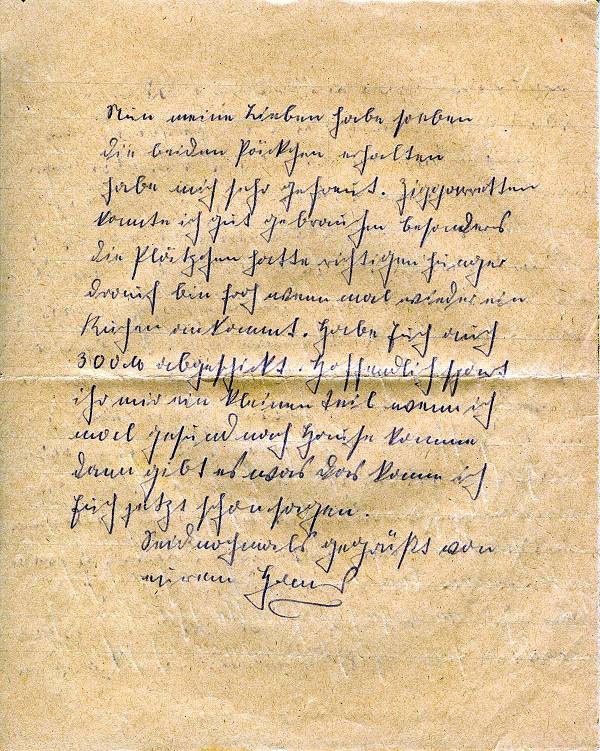 Nun meine Lieben habe soeben
die beiden Päckchen erhalten
habe mich sehr gefreut. Ziggarretten
konnte ich gut gebrauchen besonders
die Plätzchen hatte richtigen hunger
drauf bin froh wenn mal wieder ein
Kuchen ankommt. Habe Euch auch
300 M abgeschickt. Hoffendlich spart
ihr mir ein kleinen teil wenn ich
mal gesund nach Hause komme
dann gibt es was das kann ich
Euch jetzt schon sagen.
Seid nochmals gegrüßt von
eurem Hans